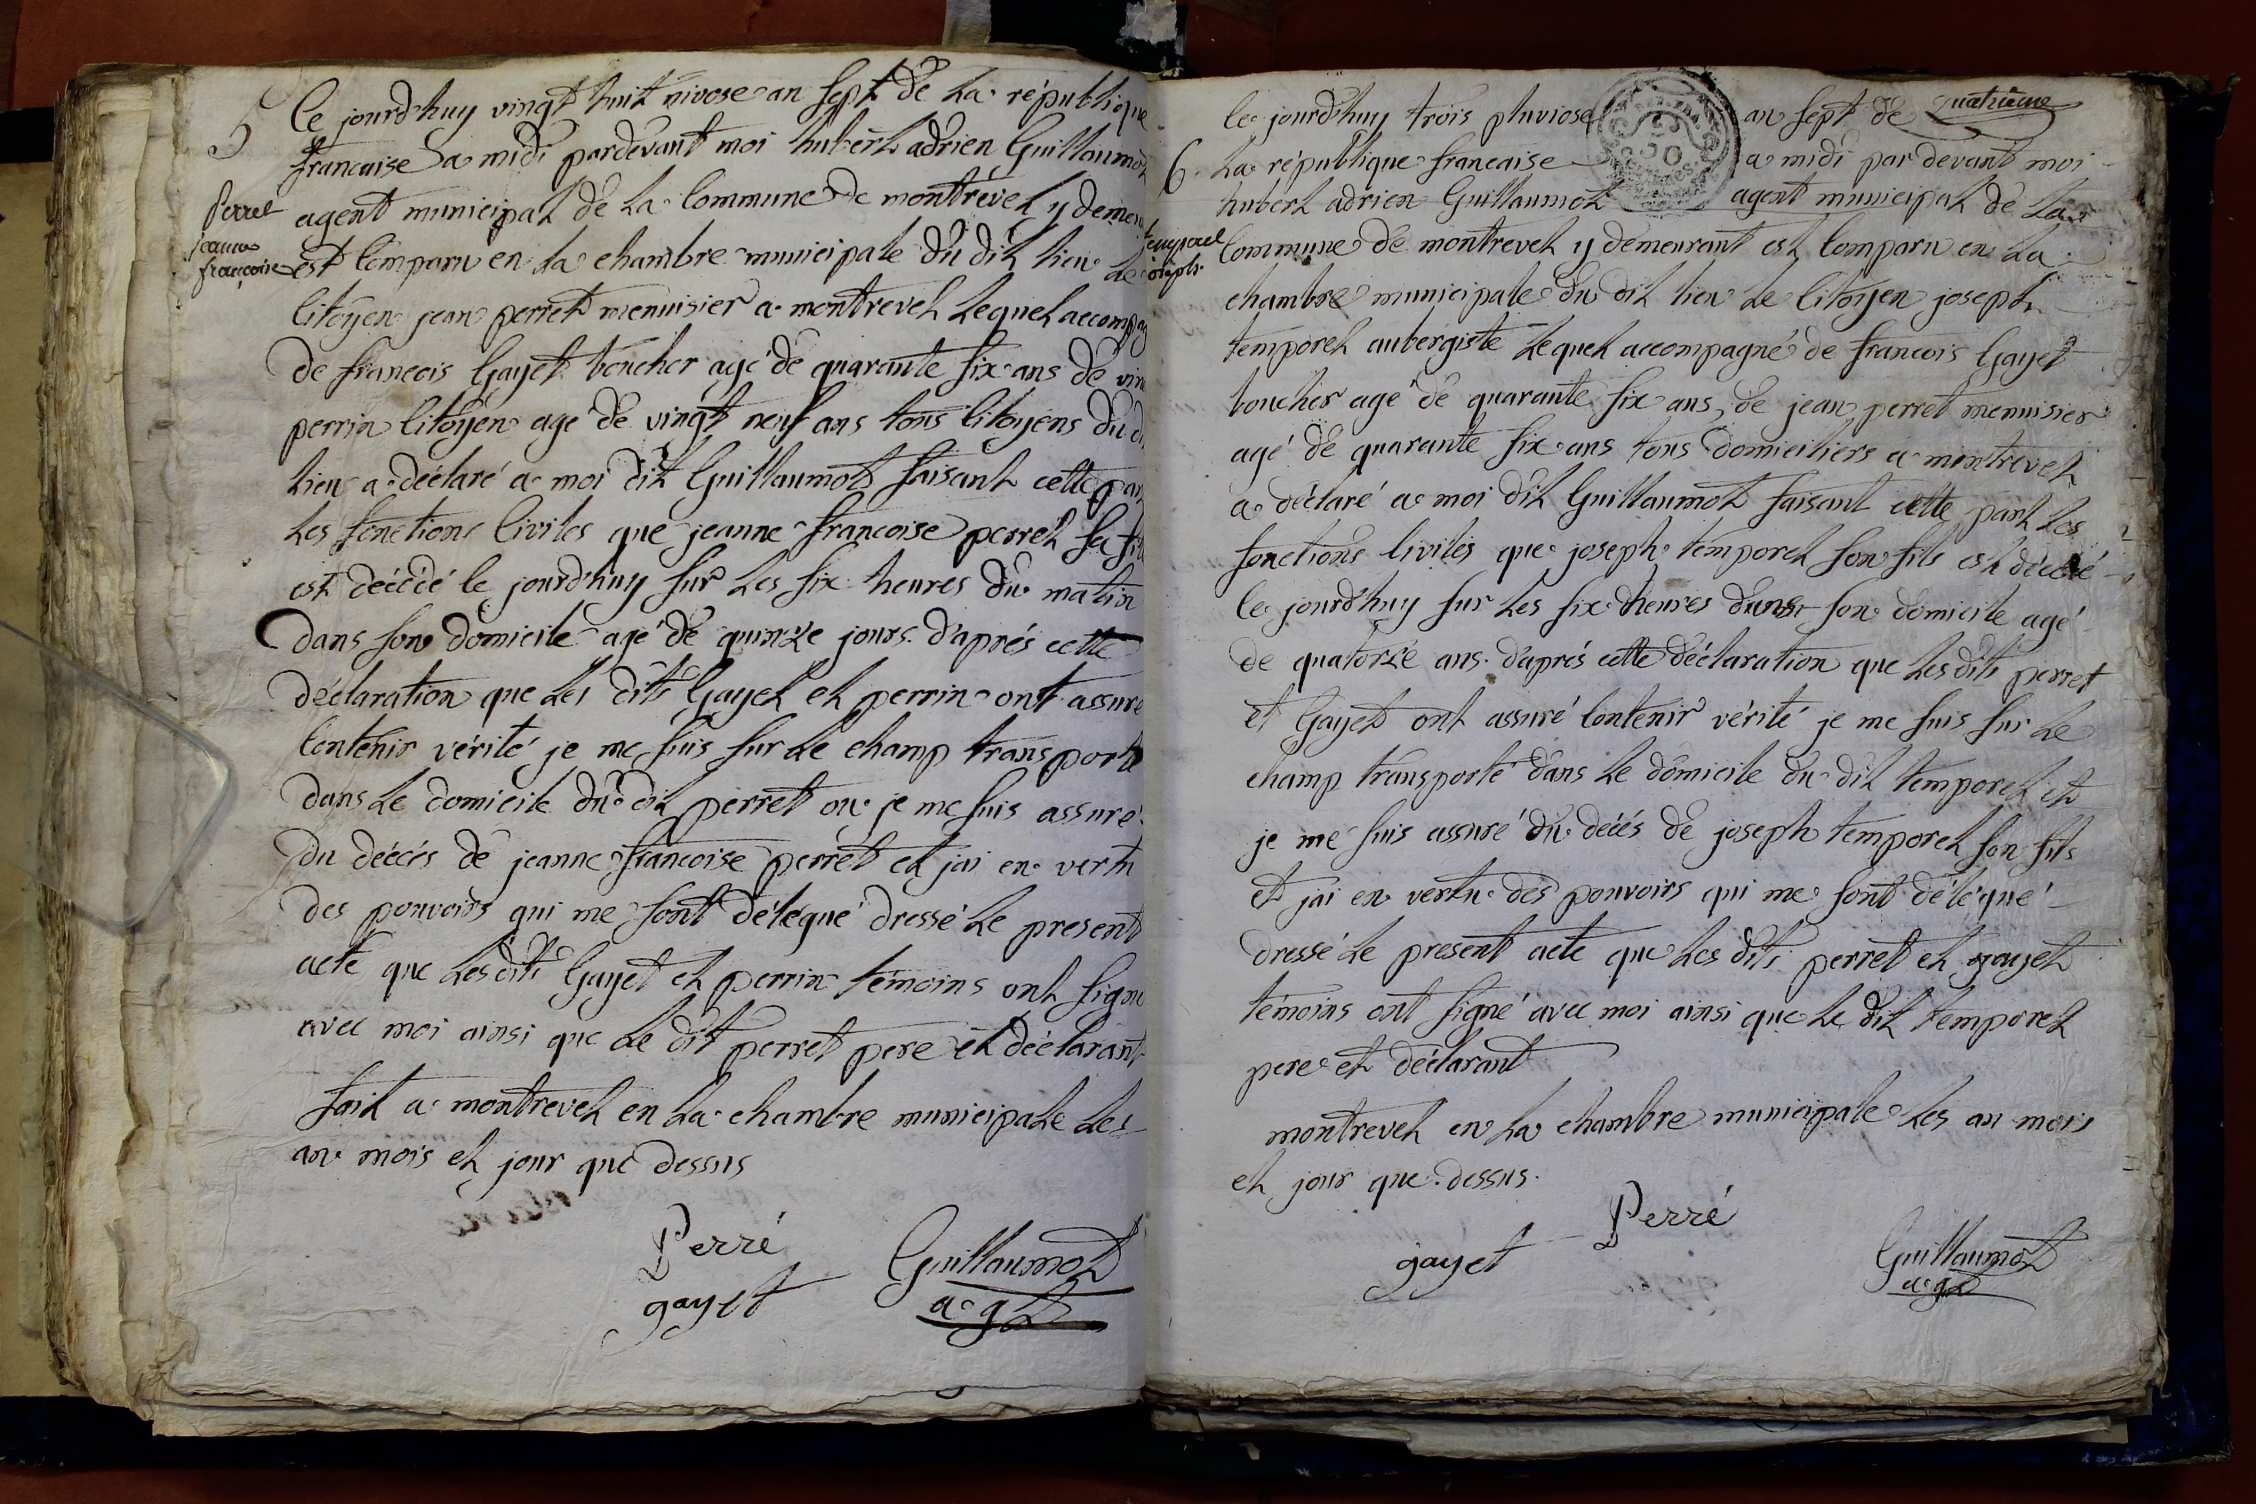 5
Perret
jeanne
françoise
Ce jourd'huy vingt huit nivose an sept de la république
francaise a midi pardevant moi hubert adrien Guillaumot
agent municipal de la Commune de montrevel y demeu
est Comparu en la chambre municipale du dit lieu le
Citoyen jean perret menuisier a montrevel lequel accompag
de francois Gayet boucher agé de quarante six ans de vin
perrin Citoyen age de vingt neuf ans tous Citoyens du d
lieu a déclaré a moi dit Guillaumot faisant cette par
les fonctions Civiles que jeanne francoise perret sa fil
est décédé le jourd'huy sur les six heures du matin
dans son domicile agé de quinze jours d'aprés cette
déclaration que les dits Gayet et perrin ont assuré
Contenir vérité je me suis sur le champ transporté
dans le domicile du dit perret ou je me suis assuré
du décés de jeanne francoise perret et jai en vertu
des pouvoirs qui me sont délégué dressé le present
acte que lesdits Gayet et perrin témoins ont signé
avec moi ainsi que le dit perret pere et déclarant
fait a montrevel en la chambre municipale les
an mois et jour que dessus
Perré
gayet
Guillaumot
a. gt
quatrième
6
temporel
joseph
le jourd'huy trois pluviose an sept de
la république francaise a midi par devant moi
hubert adrien Guillaumot agent municipal de la
Commune de montrevel y demeurant est Comparu en la
chambre municipale du dit lieu le Citoyen joseph
temporel aubergiste lequel accompagné de francois Gayet
boucher agé de quarante six ans, de jean perret menuisier
agé de quarante six ans tous domiciliers a montrevel
a déclaré a moi dit Guillaumot faisant cette part les
fonctions Civiles que joseph temporel son fils est décédé
le jourd'huy sur les six heures dans son domicile agé
de quatorze ans. d'aprés cette déclaration que lesdits perret
et Gayet ont assuré Contenir vérité je me suis sur le
champ transporté dans le domicile du dit temporel et
je me suis assuré du décés de joseph temporel son fils
et jai en vertu des pouvoirs qui me sont délégué
dressé le present acte que les dits perret et gayet
témoins ont signé avec moi ainsi que le dit temporel
pere et déclarant
montrevel en la chambre municipale les an mois
et jour que dessus.
Perré
gayet
Guillaumot
a. gt